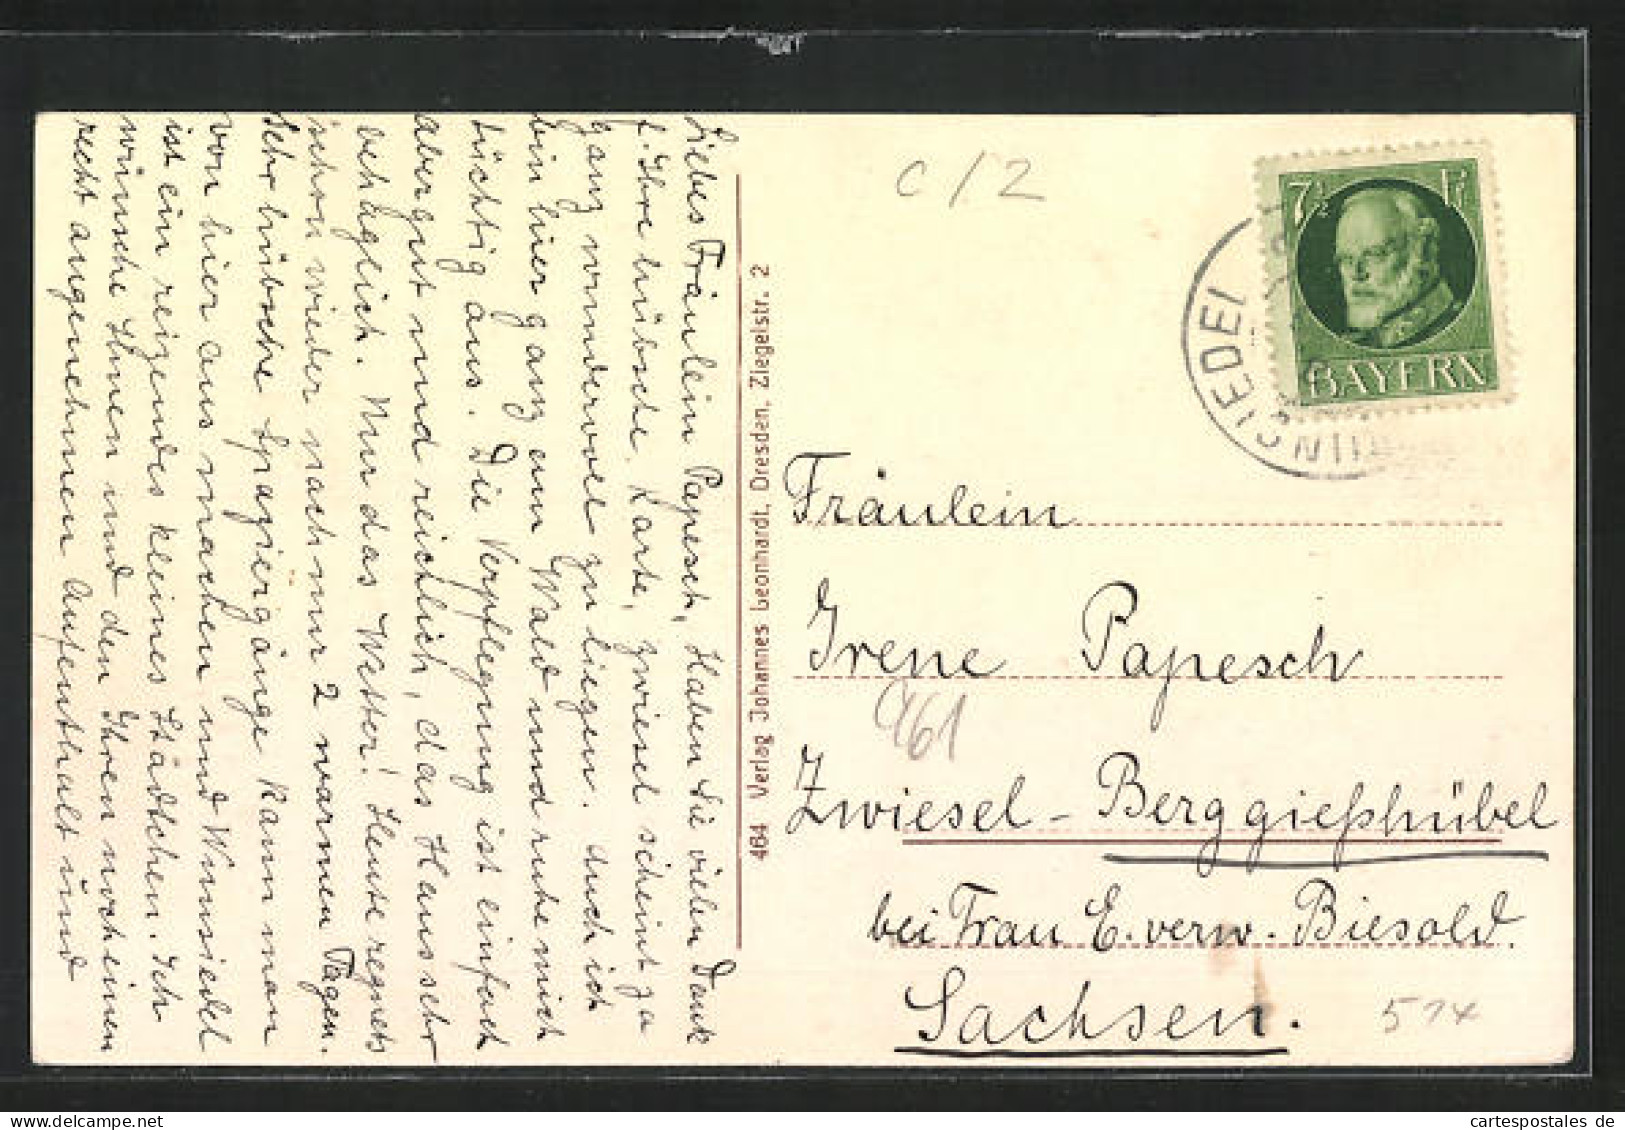 Liebes Fräulein Papesch, Haben Sie vielen Dank
f. Ihre hübsche Karte, Zwiesel scheint ja
ganz wundervoll zu liegen. Auch ich
bin hier ganz am Wald und ruhe mich
tüchtig aus. Die Verpflegung ist einfach
aber gut und reichlich, das Haus sehr
behaglich. Nur das Wetter! Heute regnets
schon wieder nach nur 2 warmen Tagen.
Sehr hübsche Spaziergänge kann man
von hier aus machen und Wunsiedel
ist ein reizendes kleines Städtchen. Ich
wünsche Ihnen und den Ihren noch einen
recht angenehmen Aufenthalt und
464 Verlag Johannes Leonhardt, Dresden, Ziegelstr. 2
C/2
7½ Pf
BAYERN
Fräulein
Irene Papesch
961
Zwiesel - Berggießhübel
bei Frau E. verw. Biesold.
Sachsen.
cartespostales de